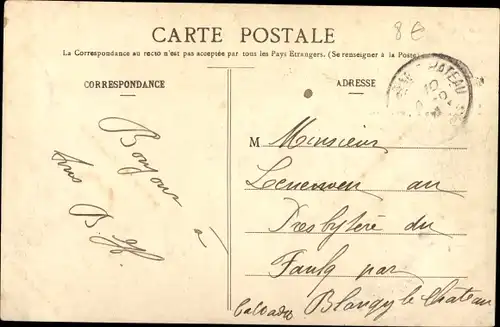 CARTE POSTALE
8 €
La Correspondance au recto n'est pas acceptée par tous les Pays Etrangers. (Se renseigner à la Poste)
CORRESPONDANCE
ADRESSE
Bonjour à
tous
M Monsieur
au
Presbytère du
Faulq par
Blangy le Chateau
Calvados